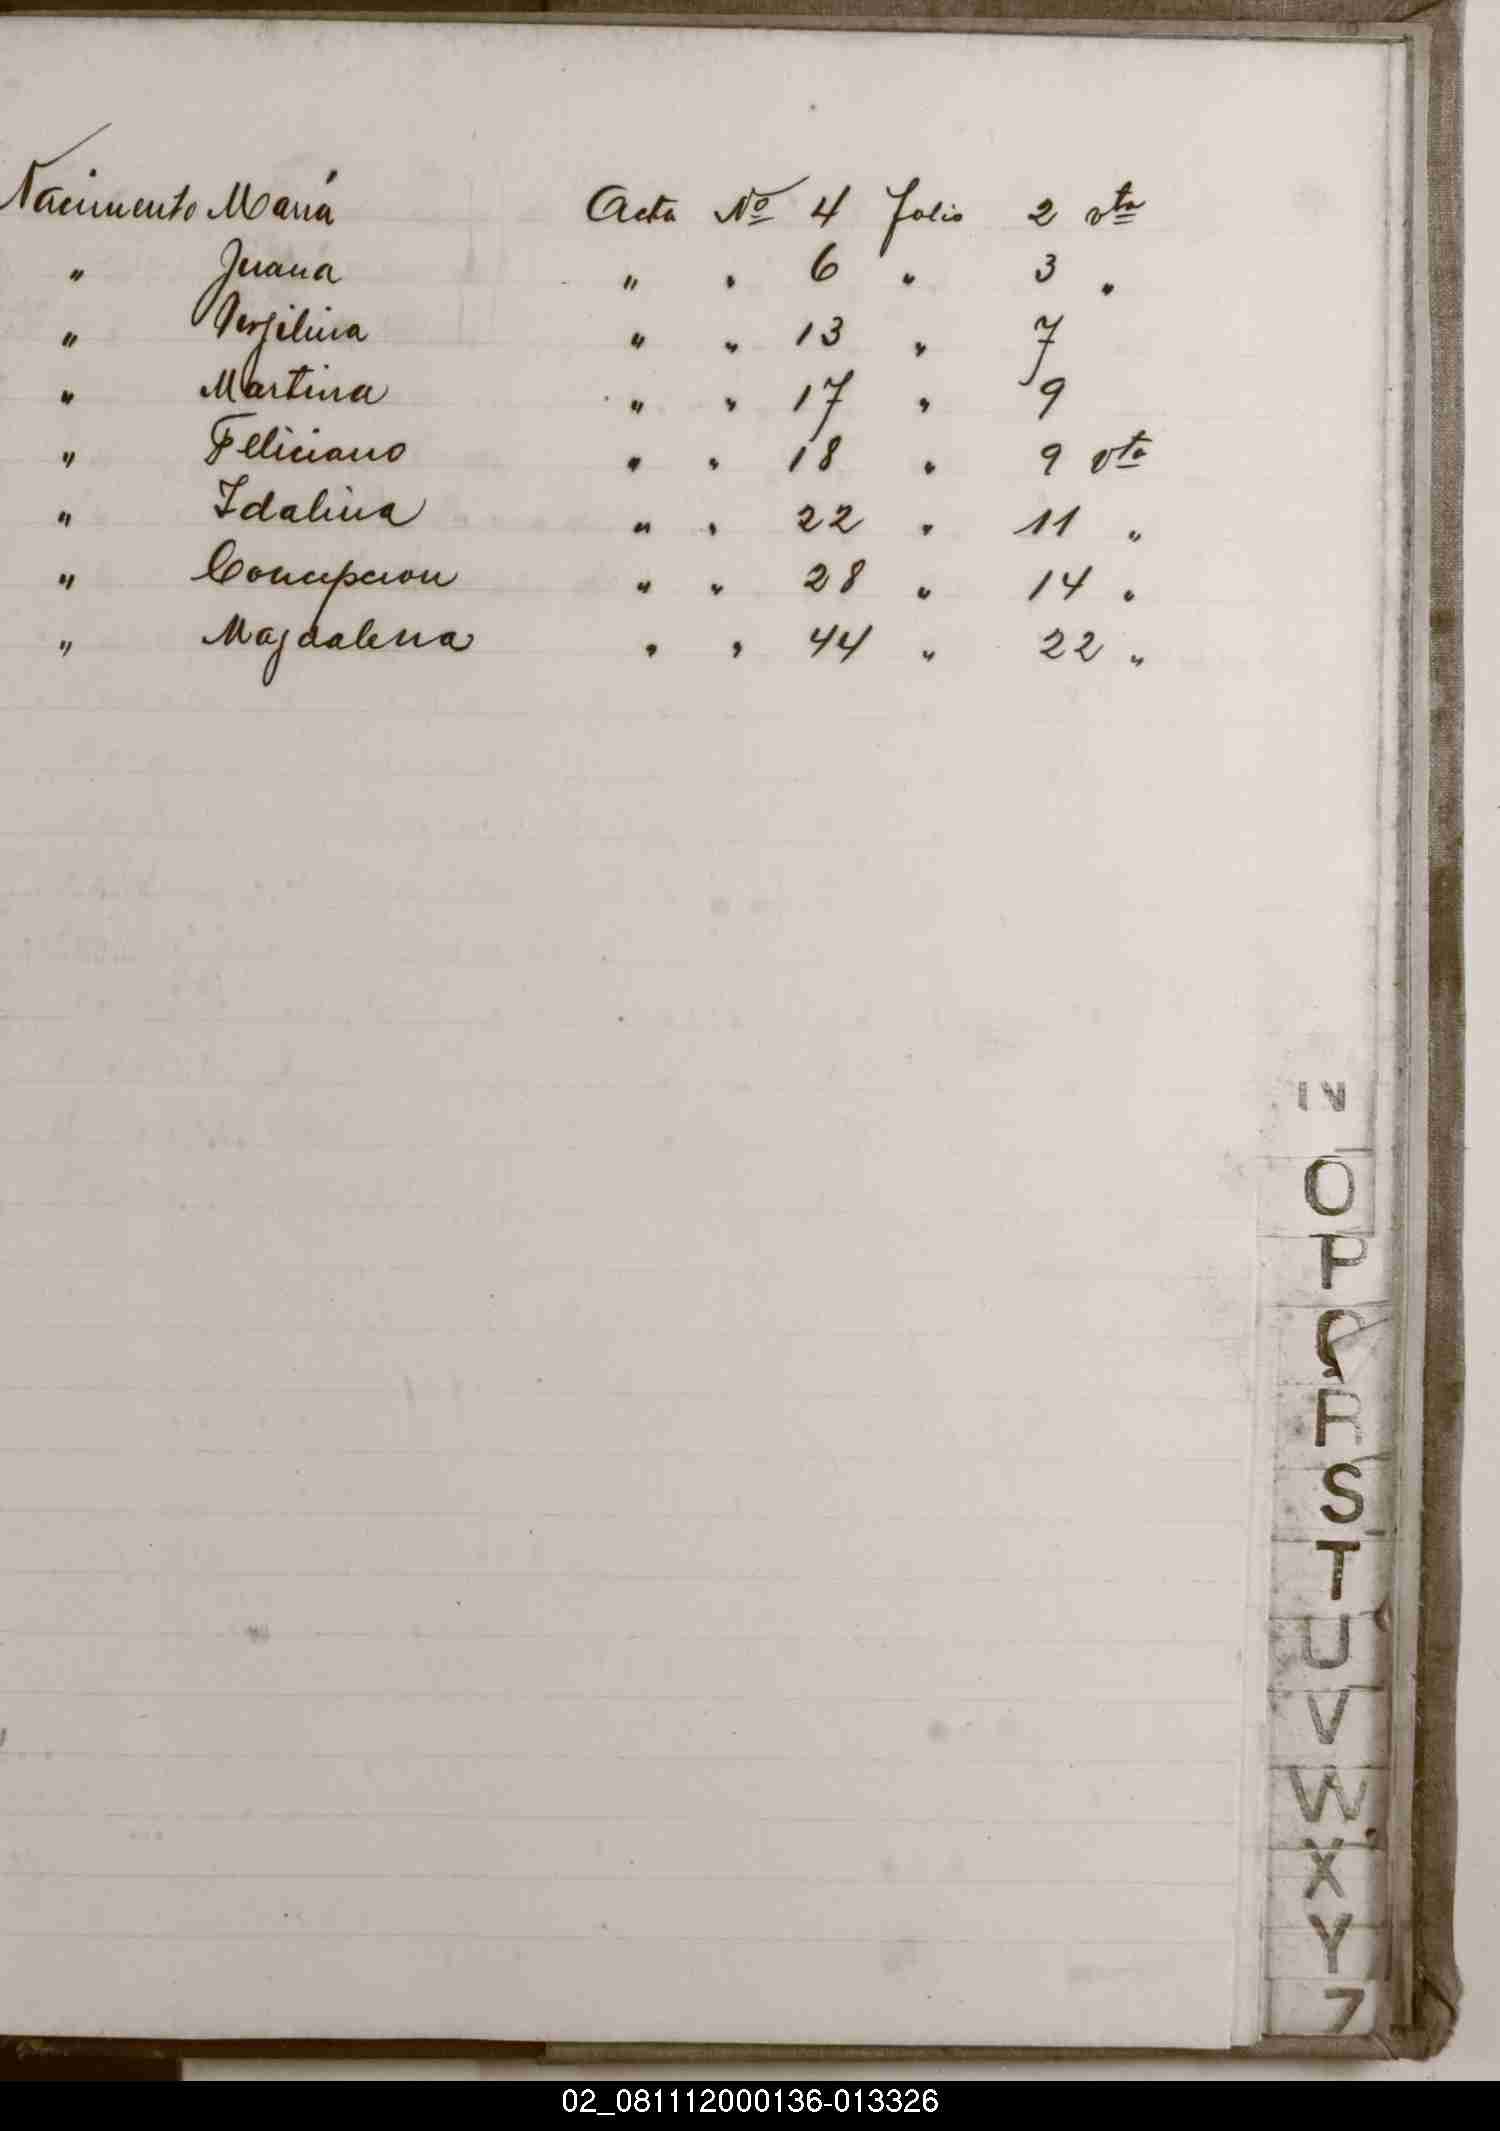 Nacimento María Acta Nº 4 folio 2 vta
" Juana " " 6 " 3 "
" Virgilina " " 13 " 7
" Martina " " 17 " 9
" Feliciano " " 18 " 9 vta
" Idalina " " 22 " 11 "
" Concepcion " " 28 " 14 "
" Magdalena " " 44 " 22 "
N
O
P
Q
R
S
T
U
V
W
X
Y
Z
02_081112000136-013326